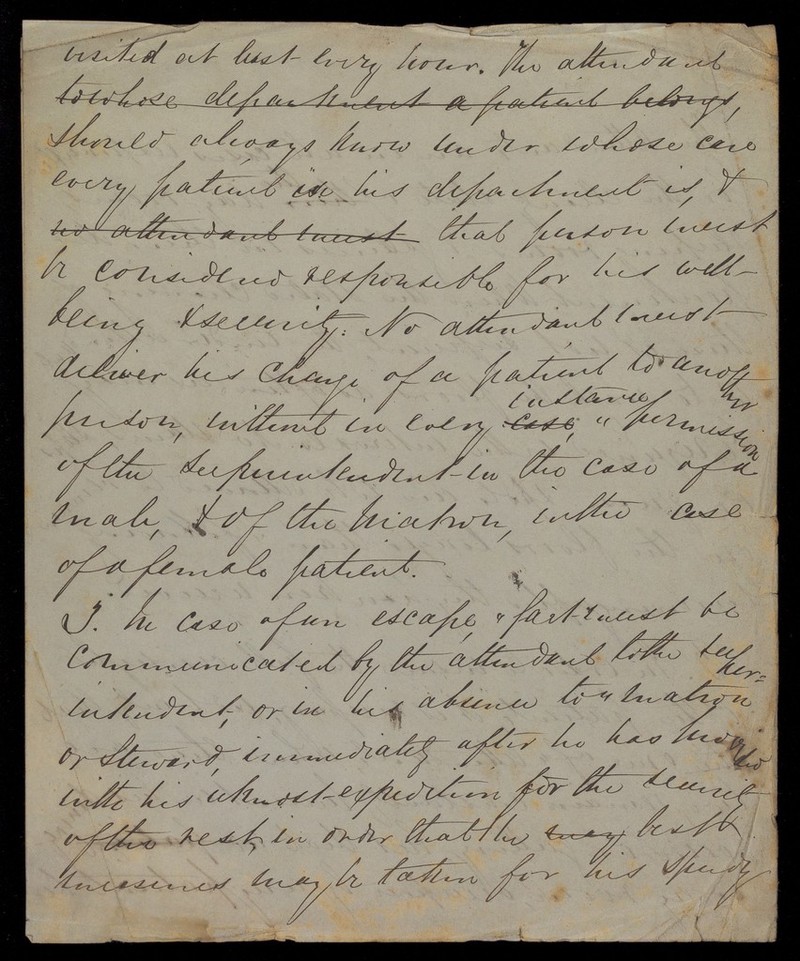 visited at least every hour. The attendant
to whose department a patient belongs,
should always know under whose care
every patient in his department is, &
no attendant must that person must
be considered responsible for his well-
being & security. No attendant must
deliver his charge of a patient to another
person, without in every case, instance " permission
of the Superintendent in the case of a
male, & of the Matron, in the case
of a female patient.
J. In case of an escape, " fact must be
communicated by the attendant to the Super=
intendent, or in his absence to " Matron
or Steward, immediately after he has provided
with his utmost expedition for the security
of the rest, in order that the may best
measures may be taken for his speedy